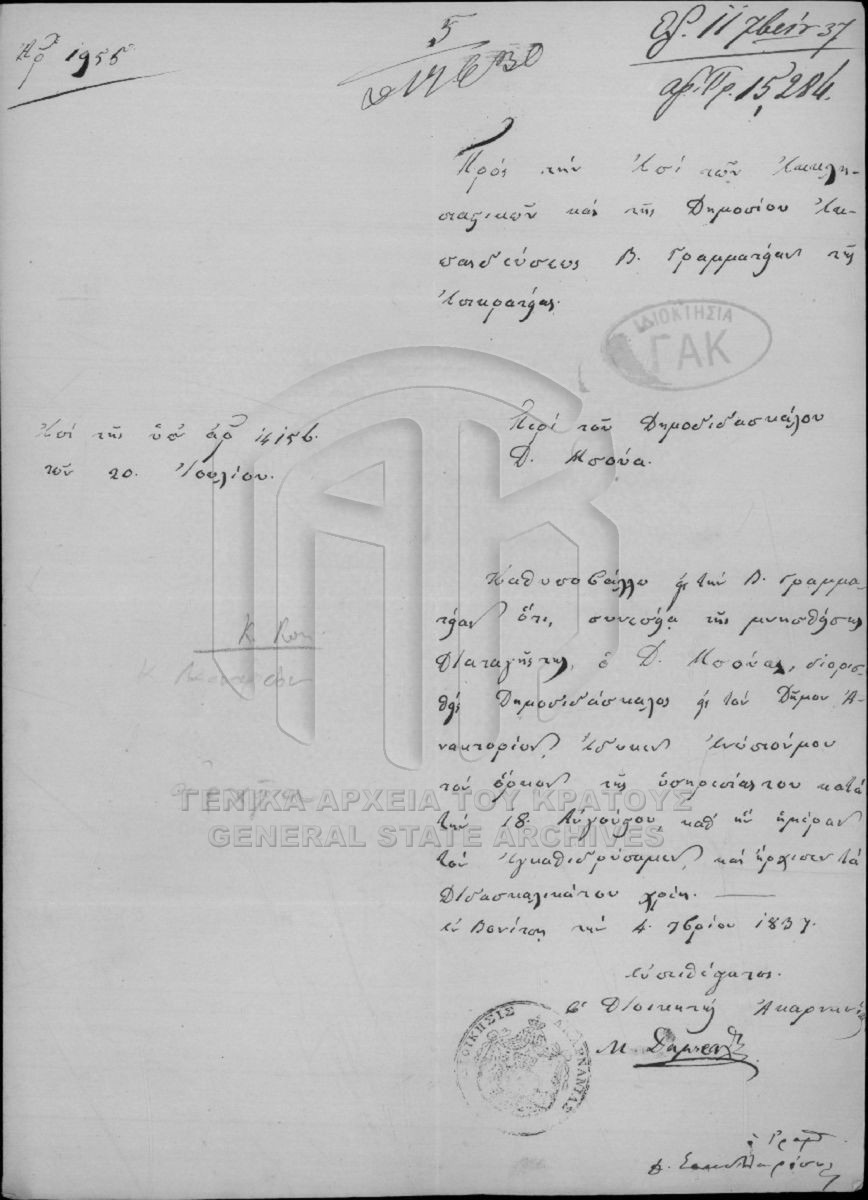 Ἀρ. 1955
5
Ἐλ. 11 7βρίου 37
αρ. Πρ. 15,284.
Πρὸς τὴν ἐπὶ τῶν Ἐκκλη-
σιαστικῶν καὶ τῆς Δημοσίου Ἐκ-
παιδεύσεως Β. Γραμματείαν τῆς
Ἐπικρατείας.
ΙΔΙΟΚΤΗΣΙΑ
ΓΑΚ
Ἐπὶ τῆς ὑπ' ἀρ.
τῶν 20. Ἰουλίου.
Περὶ τοῦ Δημοδιδασκάλου
Δ. Μπούα.
Καθυποβάλλω εἰς τὴν Β. Γραμμα-
τείαν ὅτι, συνεπείᾳ τῆς μνησθείσης
Διαταγῆς της, ὁ Δ. Μπούας, διορισ-
θεὶς Δημοδιδάσκαλος εἰς τὸν Δῆμον Ἀ-
νακτορίου, ἔδωκεν ἐνώπιόν μου
τὸν ὅρκον τῆς ὑπηρεσίας του κατὰ
τὴν 18. Αὐγούστου, καθ' ἣν ἡμέραν
τὸν ἐγκαθιδρύσαμεν, καὶ ἤρχισεν τὰ
Διδασκαλικά του χρέη.
Ἐν Βονίτσῃ τὴν 4. 7βρίου 1837.
Εὐπειθέστατος
ὁ Διοικητὴς Ἀκαρνανίας
Μ.
ΔΙΟΙΚΗΣΙΣ ΑΚΑΡΝΑΝΙΑΣ
ὁ Γραμ.
ΓΕΝΙΚΑ ΑΡΧΕΙΑ ΤΟΥ ΚΡΑΤΟΥΣ
GENERAL STATE ARCHIVES